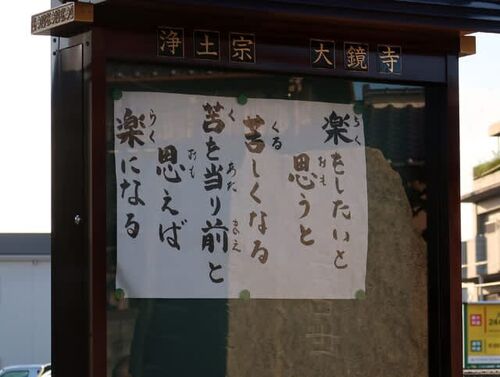 浄土宗 大鏡寺
楽をしたいと
らく
思うと
おも
苦しくなる
くる
苦を当り前と
く あた まえ
思えば
おも
楽になる
らく
24